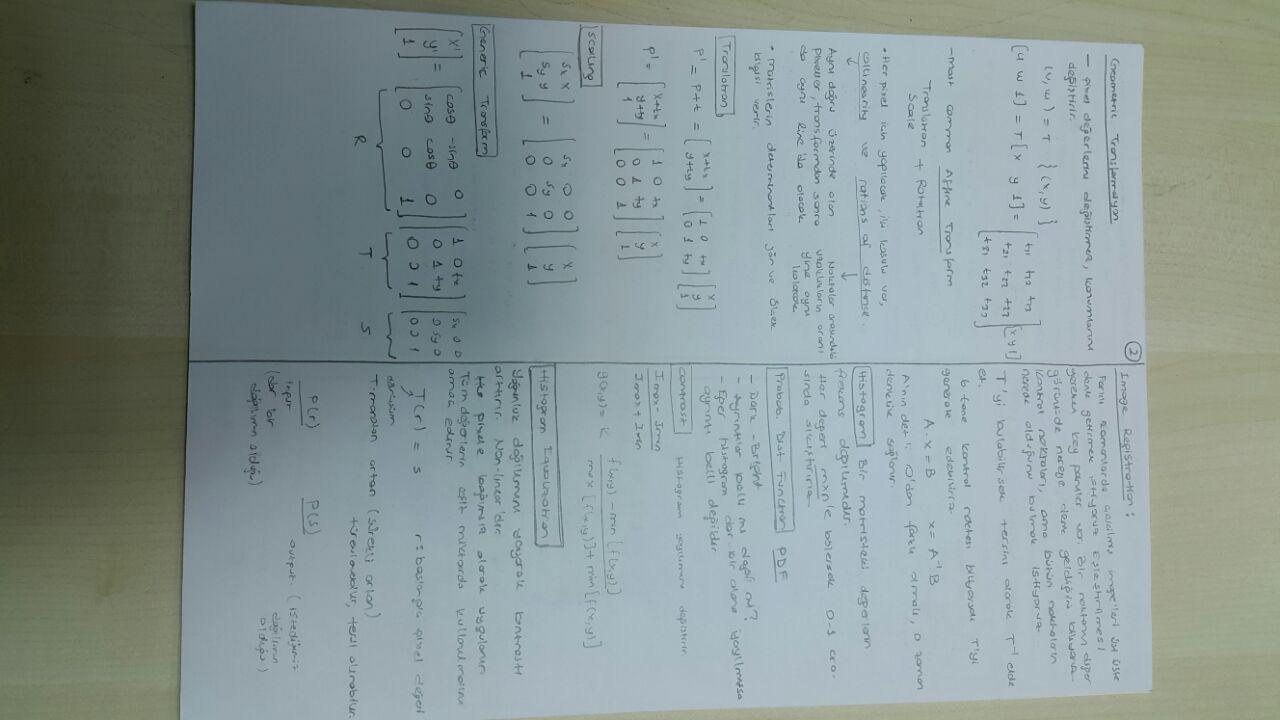 2
Geometric Transformasyon
— pixel değerlerini değiştirmez, konumlarını
değiştirir.
(v,w) = T { (x,y) }
[u w 1] = T [x y 1] = [t11 t12 t13
t21 t22 t23
t31 t32 t33] [x y 1]
— most common Affine Transform
Translation + Rotation
Scale
• Her pixel için yapılacak, iki koşulu var,
collinearity ve rations of distanse.
Aynı doğru üzerinde olan
pixeller, transformdan sonra
da aynı line'da olacak
Noktalar arasındaki
uzaklıkların oranı
yine aynı
kalacak
• matrislerin determinantları yön ve ölçek
bilgisi verir.
Translation
P' = P+t = [x+tx
y+ty] = [1 0 tx
0 1 ty] [x
y
1]
P' = [x+tx
y+ty
1] = [1 0 tx
0 1 ty
0 0 1] [x
y
1]
Scaling
[sx x
sy y
1] = [sx 0 0
0 sy 0
0 0 1] [x
y
1]
Generic Transform
[x'
y'
1] = [cosθ -sinθ 0
sinθ cosθ 0
0 0 1] [1 0 tx
0 1 ty
0 0 1] [sx 0 0
0 sy 0
0 0 1]
R T S
Image Registration :
Farklı zamanlarda çekilmiş imageleri üst üste
denk getirmek istiyoruz Eşleştirilmesi
gereken key pointler var. Bir noktanın diğer
görüntüde nereye denk geldiğini biliyoruz
kontrol noktaları, ama bütün noktaların
nerede olduğunu bulmak istiyoruz
T'yi bulabilirsek tersini alarak T⁻¹ elde
et.
6 tane kontrol noktası biliyorsak T'yi
generate edebiliriz.
A.x = B x = A⁻¹B
A'nın det'i 0'dan farklı olmalı, o zaman
denklik sağlanır.
Histogram Bir matristeki değerlerin
frekans dağılımıdır.
Her değeri mxn'e bölersek 0-1 ara-
sında sıkıştırırız
Probab. Dist Function PDF
- Dark - Bright
- Ayrıntılar belli mi değil mi?
- Eğer histogram dar bir alana yayılmışsa
ayrıntı belli değildir
contrast Histogram yayılımını değiştirir.
Imax - Imin
Imax + Imin
g(x,y) = K f(x,y) - min [f(x,y)]
max [f(x,y)] + min [f(x,y)]
Histogram Equalization
Yoğunluk dağılımını yayarak kontrastı
arttırır. Non-linear'dır.
Her pixele bağımsız olarak uygulanır
Tüm değerlerin eşit miktarda kullanılmasını
amaç edinir
T(r) = s r: başlangıç pixel değeri
dönüşüm
T: monoton artan (sürekli artan)
türevlenebilir, tersi alınabilir.
P(r) P(s)
input output (istediğimiz
(dar bir dağılımın
dağılımın olduğu) olduğu)